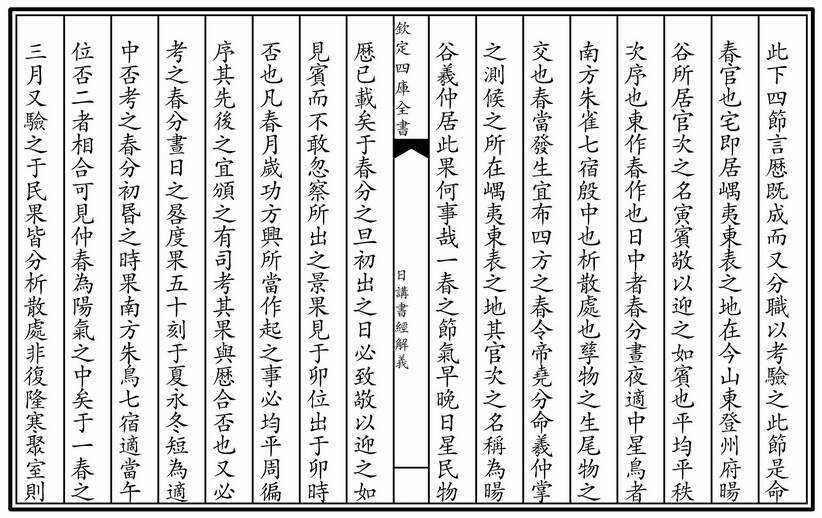 此下四節言厯既成而又分職以考驗之此節是命
春官也宅即居嵎夷東表之地在今山東登州府暘
谷所居官次之名寅賔敬以迎之如賔也平均平秩
次序也東作春作也日中者春分晝夜適中星鳥者
南方朱雀七宿殷中也析散處也孳物之生尾物之
交也春當發生宜布四方之春令帝堯分命羲仲掌
之測候之所在嵎夷東表之地其官次之名稱為暘
谷羲仲居此果何事哉一春之節氣早晚日星民物
欽定四庫全書
日講書經解義
厯已載矣于春分之旦初出之日必致敬以迎之如
見賔而不敢忽察所出之景果見于卯位出于卯時
否也凡春月歲功方興所當作起之事必均平周徧
序其先後之宜頒之有司考其果與厯合否也又必
考之春分晝日之晷度果五十刻于夏永冬短為適
中否考之春分初昏之時果南方朱鳥七宿適當午
位否二者相合可見仲春為陽氣之中矣于一春之
三月又驗之于民果皆分析散處非復隆寒聚室則